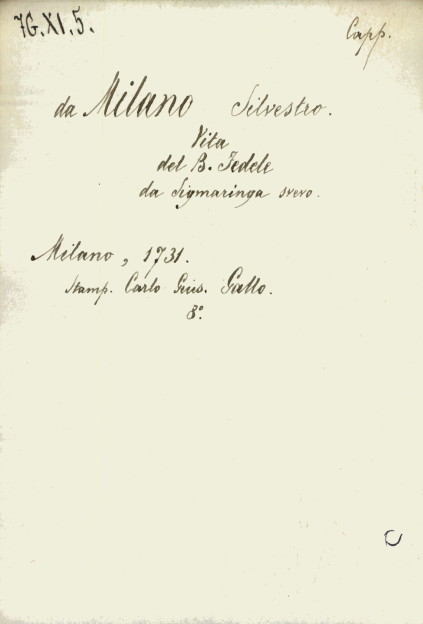 7G.XI.5.
Capp.
da Milano Silvestro.
Vita
del B. Fedele
da Sigmaringa svevo.
Milano, 1731.
Stamp. Carlo Gius. Gallo.
8º.